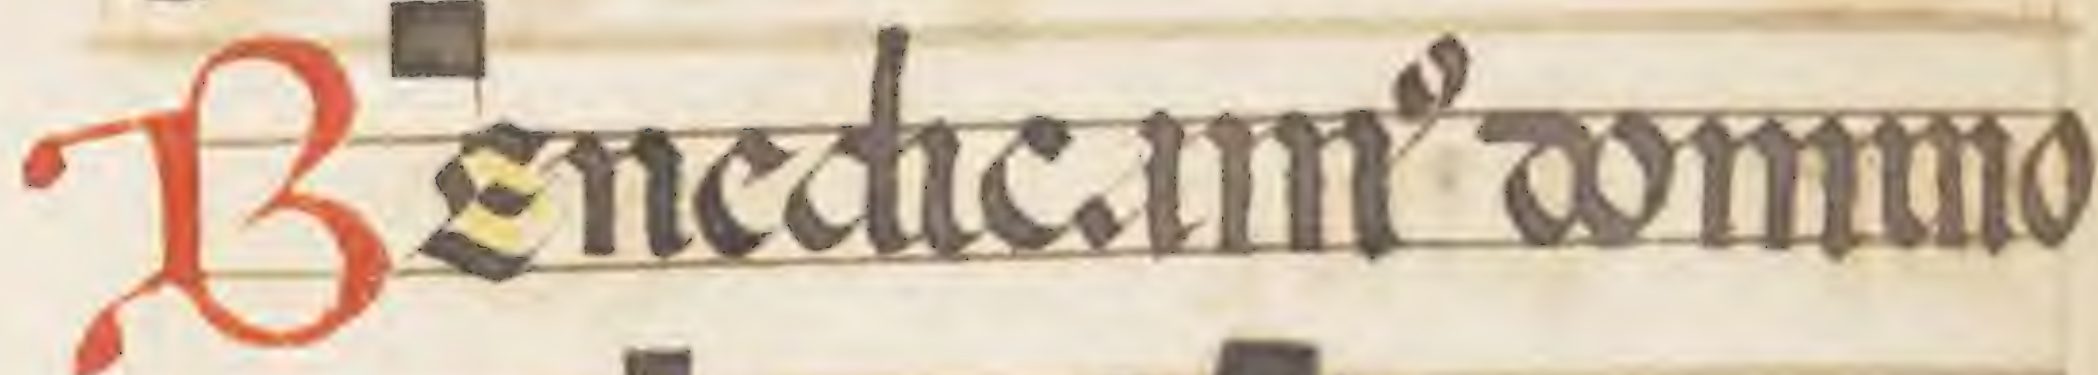 Benedicamꝰ domino